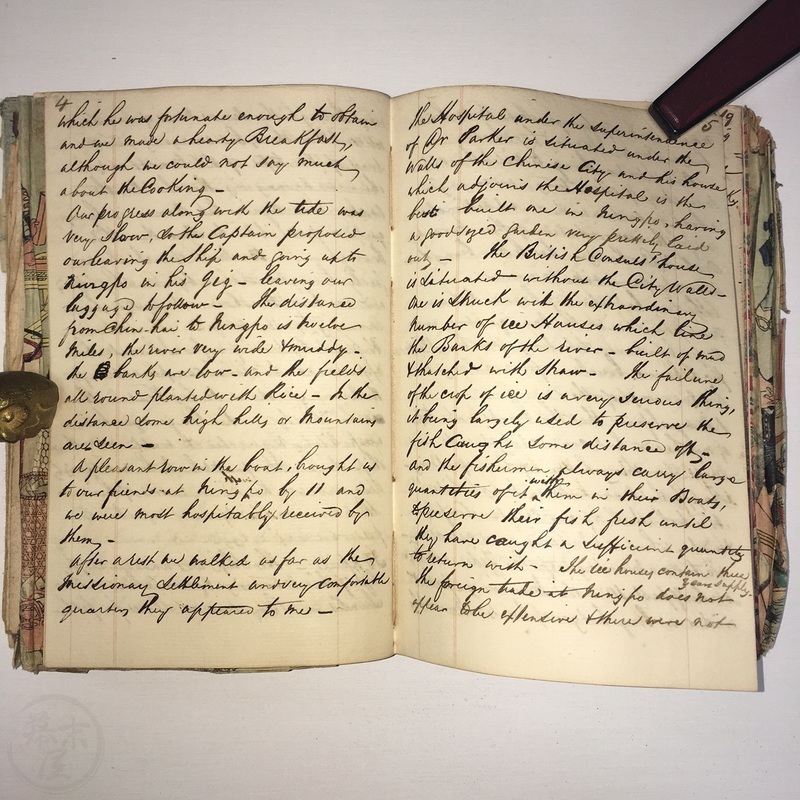 4
which he was fortunate enough to obtain
and we made a hearty Breakfast,
although we could not say much
about the Cooking –
Our progress along with the tide was
very slow, so the Captain proposed
our leaving the Ship and going up to
Ningpo in his Gig – leaving our
luggage to follow – The distance
from Chin-hai to Ningpo is twelve
miles, the river very wide & muddy –
the banks are low – and the fields
all round planted with Rice – In the
distance some high hills or Mountains
are seen –
A pleasant row in the boat, brought us
to our friends at Ningpo by 11 and
we were most hospitably received by
them –
After a rest we walked as far as the
Missionary Settlement and very comfortable
quarters they appeared to me –
5
the Hospital under the superintendence
of Dr Parker is situated under the
Walls of the Chinese City and his house
which adjoins the Hospital is the
best built one in Ningpo, having
a good sized garden very prettily laid
out – The British Consuls' house
is situated without the City Walls –
one is struck with the extraordinary
number of ice Houses which line
the Banks of the river – built of mud
& thatched with Straw – The failure
of the crop of ice is a very serious thing,
it being largely used to preserve the
fish Caught some distance off –
and the fishermen always carry large
quantities of it with them in their Boats,
to preserve their fish fresh until
they have caught a sufficient quantity
to return with – The ice houses contain three
years supply –
the foreign trade at Ningpo does not
appear to be extensive & there were not